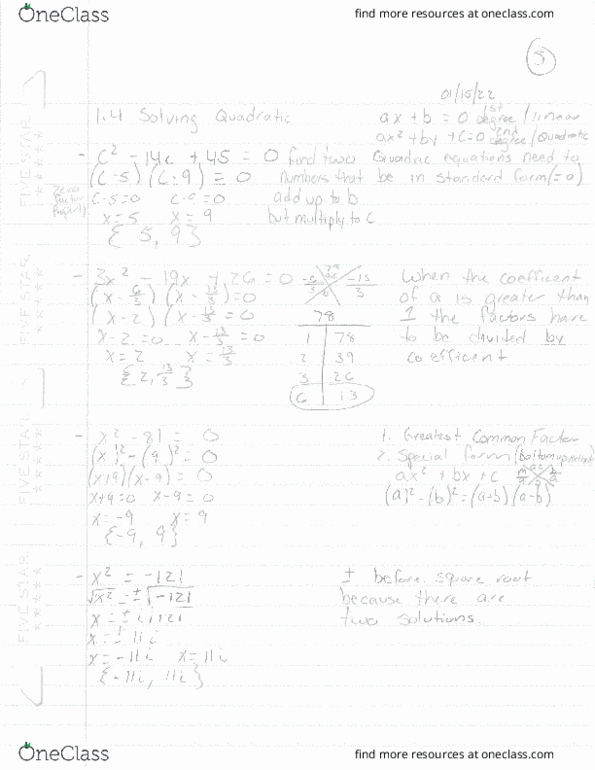 OneClass
find more resources at oneclass.com
5
01/15/22
1.4 Solving Quadratic
ax + b = 0 1st degree / linear
ax² + by + c = 0 2nd degree / Quadratic
- c² - 14c + 45 = 0 find two
(c - 5) (c - 9) = 0 numbers that
c - 5 = 0 c - 9 = 0 add up to b
x = 5 x = 9 but multiply to c
{5, 9}
Zero
Factor
Property
Quadric equations need to
be in standard form (= 0)
- 3x² - 19x + 26 = 0
(x - 6/3) (x - 13/3) = 0
(x - 2) (x - 13/3) = 0
x - 2 = 0 x - 13/3 = 0
x = 2 x = 13/3
{2, 13/3}
78
1 78
2 39
3 26
6 13
When the coefficent
of a is greater than
1 the factors have
to be divided by
coefficent
- x² - 81 = 0
(x)² - (9)² = 0
(x+9)(x-9) = 0
x+9=0 x-9=0
x = -9 x = 9
{-9, 9}
1. Greatest Common Factor
2. Special form
ax² + bx + c
(a)² - (b)² = (a+b)(a-b)
- x² = -121
√x² = ±√-121
x = ± i√121
x = ± 11i
x = -11i x = 11i
{-11i, 11i}
± before square root
because there are
two solutions.
FIVE STAR
FIVE STAR
FIVE STAR
FIVE STAR
OneClass
find more resources at oneclass.com